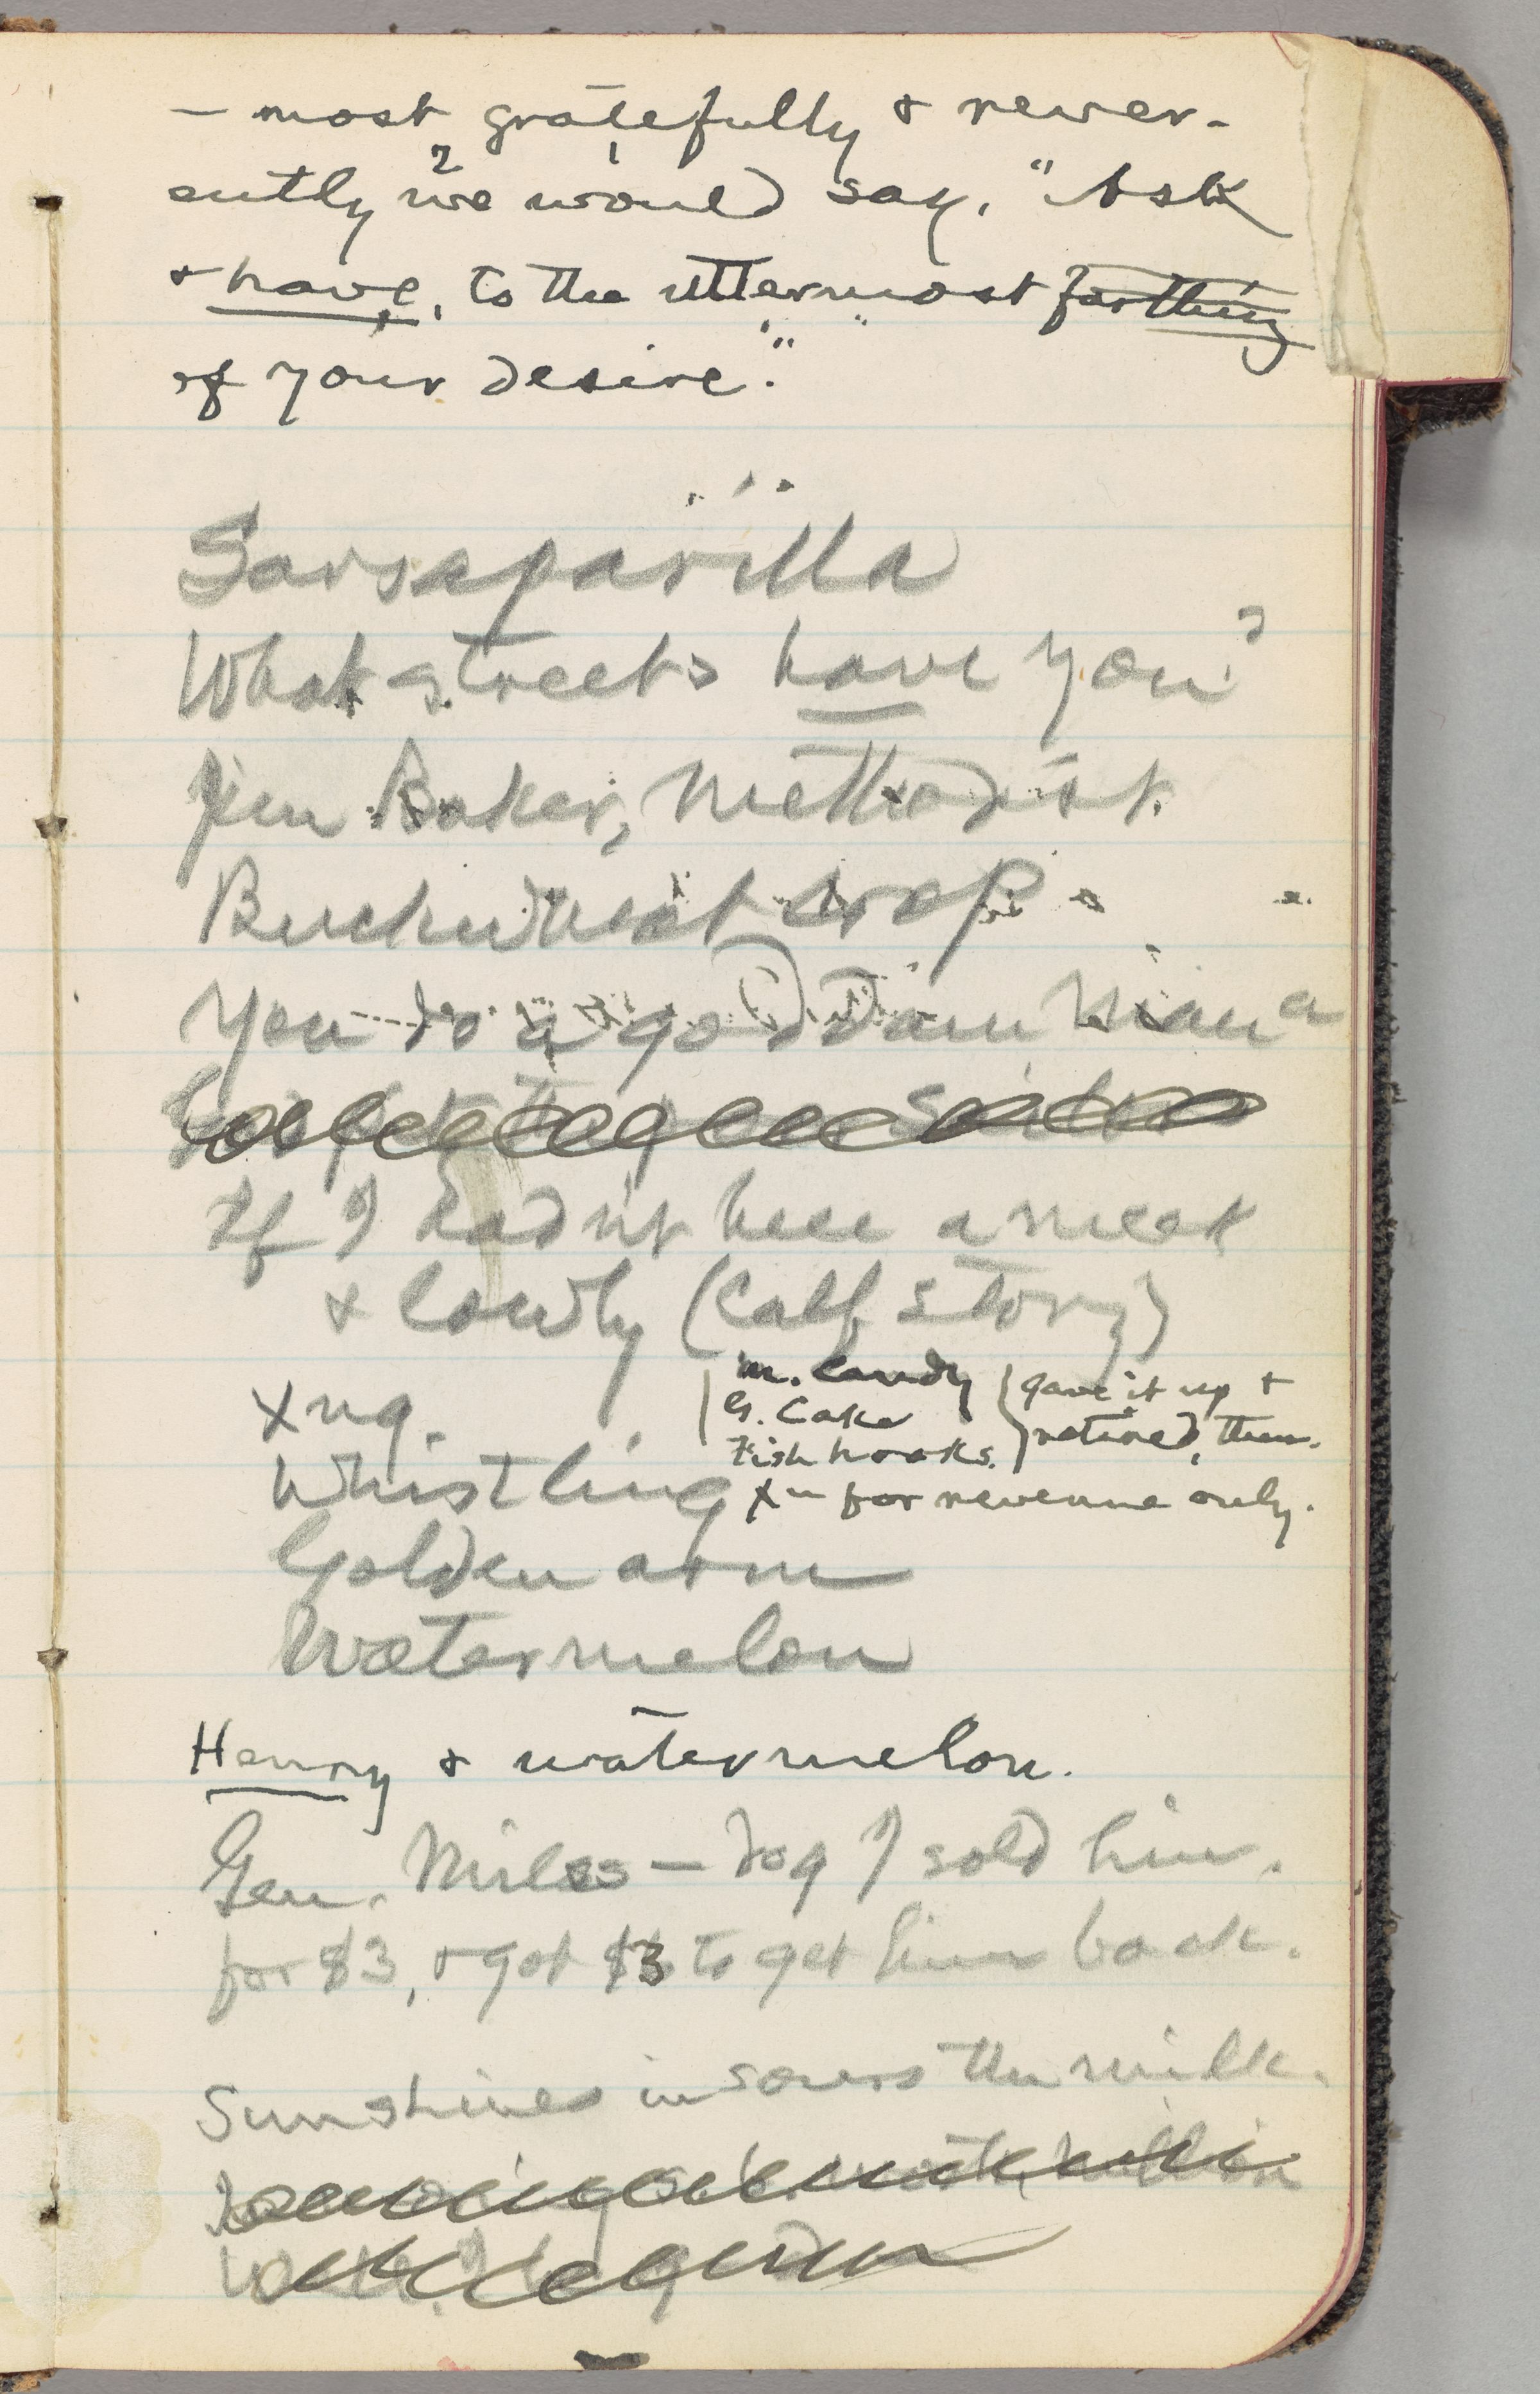 — most gratefully & rever-
ently we would say, "Ask
& have, to the uttermost farthing
of your desire."
Sarsaparilla
What streets have you?
Jim Baker, Methodist.
Buckwheat crop.
You do a god dam Mana
If I hadn't bee a meek
& lowly (Calf story)
Xng.
M. Candy
G. Cake
Fish hooks.
gave it up &
retired, then.
Whistling
Xn for revenue only.
Golden arm
Watermelon
Henry & watermelon.
Gen. Miles — dog I sold him.
for $3, & got $3 to get him back.
Sunshines in sours the milk.